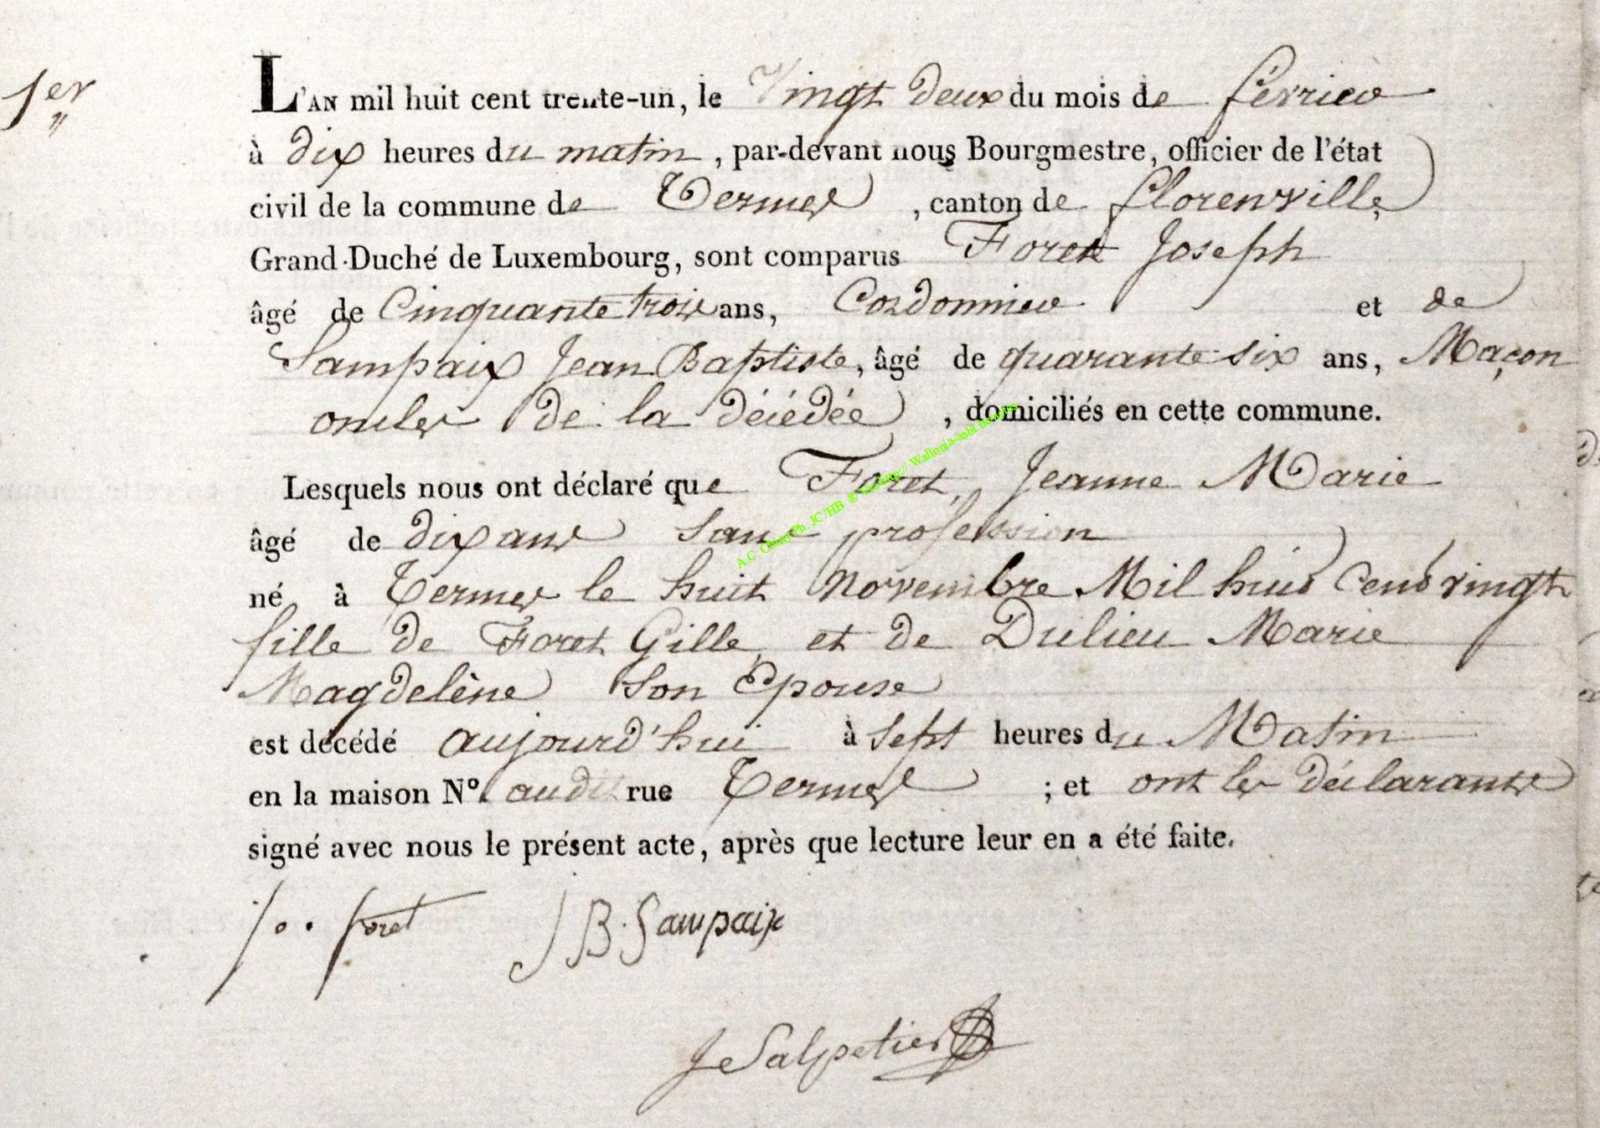 1er
L'AN mil huit cent trente-un, le Vingt deux du mois de fevrier
à dix heures du matin, par-devant nous Bourgmestre, officier de l'état
civil de la commune de Termes, canton de florenville
Grand-Duché de Luxembourg, sont comparus Foret Joseph
âgé de Cinquante trois ans, Cordonnier et de
Sampaix Jean Baptiste, âgé de quarante six ans, Maçon
oncles de la décédée, domiciliés en cette commune.
Lesquels nous ont déclaré que Foret, Jeanne Marie
âgé de dix ans sans profession
né à Termes le huit Novembre Mil huit Cent vingt
fille de Foret Gille, et de Dulieu Marie
Magdelène son Epouse
est décédé aujourd'hui à sept heures du Matin
en la maison N° audit rue Termes ; et ont les déclarants
signé avec nous le présent acte, après que lecture leur en a été faite.
Jo. foret JB. Sampaix
J e Salpetier